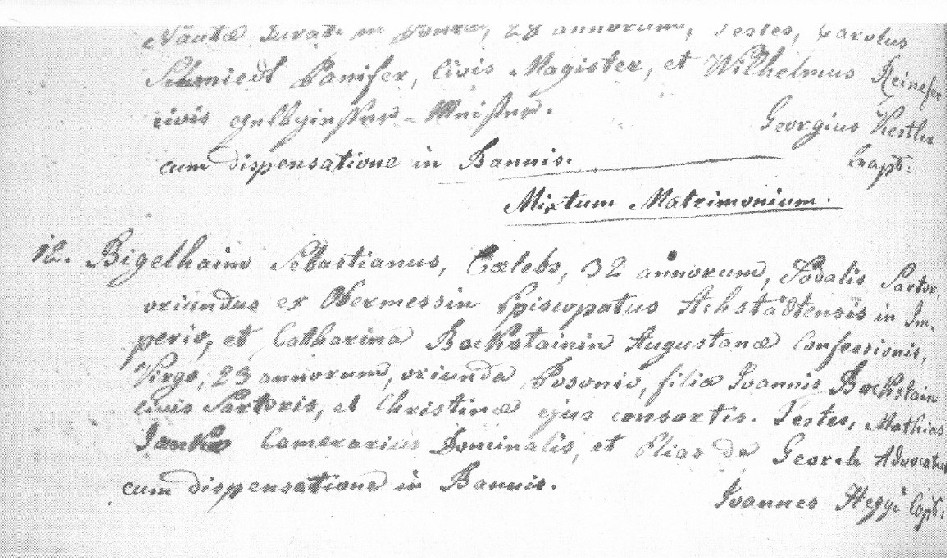 Nautæ Jurati in 28 annorum, Testes, Carolus
Schmiedl Panifex, Civis Magister, et Wilhelmus
civis Meister.
Georgius
cum dispensatione in Bannis.
Mixtum Matrimonium.
12. Bigelhaim Sebastianus, Cœlebs, 32 annorum, Sodalis Sartor,
oriundus ex Obermessin Episcopatus Aichstadtensis in Im-
perio, et Catharina Bockstainin Augustanæ Confessionis,
Virgo, 23 annorum, oriunda Posonio, filia Joannis Bockstain
Civis Sartoris, et Christinæ ejus consortis. Testes, Mathias
Janko Camerarius Dominalis, et Elias de Georch Advocatus
cum dispensatione in Bannis.
Joannes Hegyi Cap: